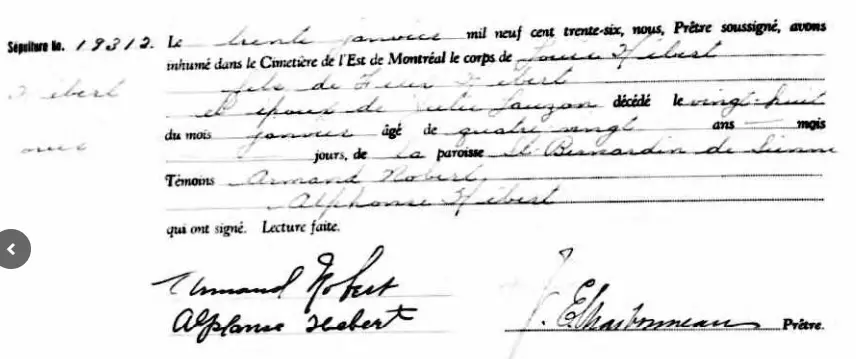 Sépulture No. 19312. Le trente janvier mil neuf cent trente-six, nous, Prêtre soussigné, avons
inhumé dans le Cimetière de l'Est de Montréal le corps de Louis Hébert
Hébert fils de Feux Hébert
et époux de Julie Lauzon décédé le vingt-huit
du mois janvier âgé de quatre vingt ans — mois
jours, de la paroisse St Bernardin de Sienne
Témoins Armand Robert,
Alphonse Hébert
qui ont signé. Lecture faite.
Armand Robert
Alphonse Hebert J. E. Charbonneau Prêtre.